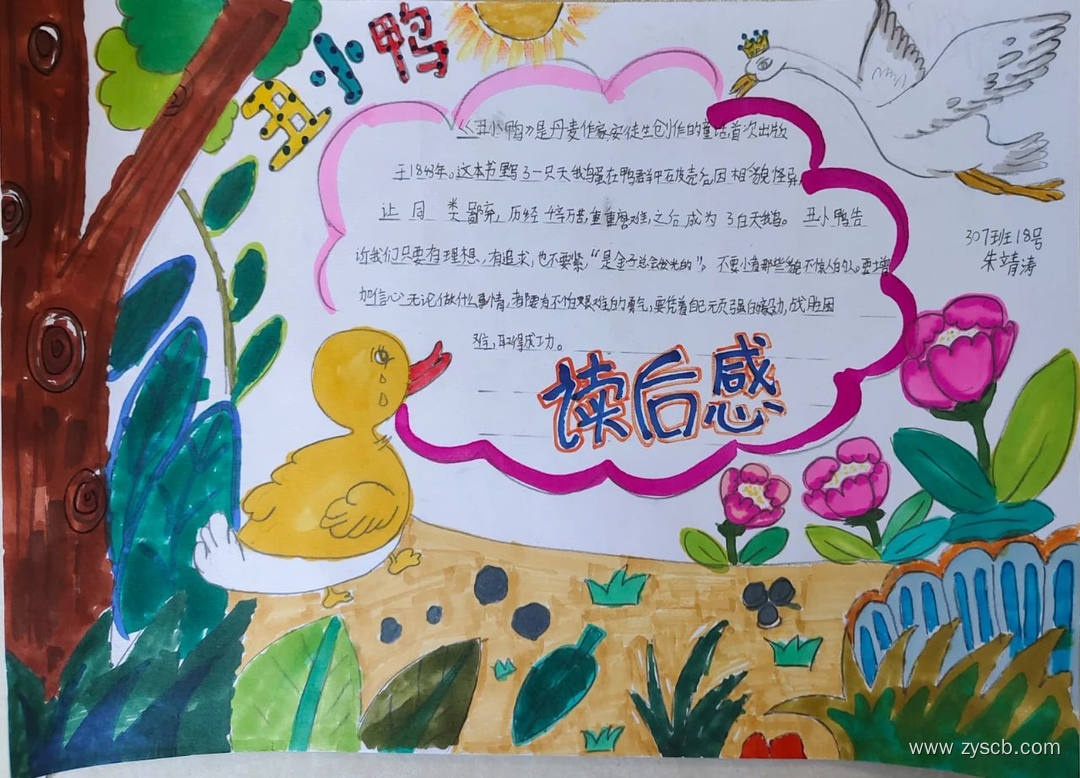 丑小鸭
《丑小鸭》是丹麦作家安徒生创作的童话,首次出版
于1843年。这本书写了一只天鹅蛋在鸭群中破壳后,因相貌怪异,
让同类鄙弃,历经千辛万苦,重重磨难,之后成为了白天鹅。丑小鸭告
诉我们只要有理想,有追求,也不要紧“是金子总会发光的”。不要小看那些貌不惊人的人。要增
加信心,无论做什么事情,都要有不怕艰难的勇气,要凭着自己顽强的毅力,战胜困
难,取得成功。
读后感
307班18号
朱靖涛
www.zyscb.com